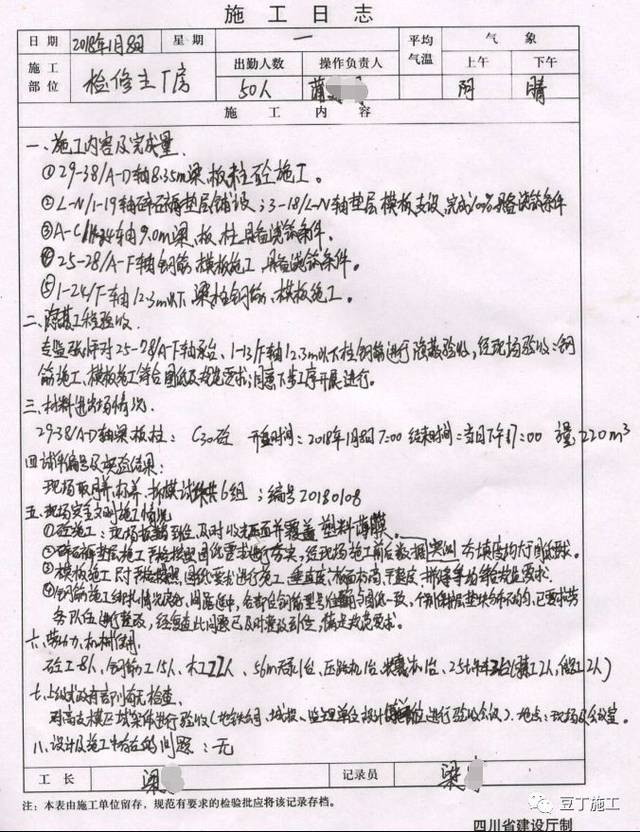 施工日志
日期 2018年1月8日 星期 一 平均气温 气象
施工部位 检修主厂房 出勤人数 操作负责人 上午 下午
50人 蒲 阴 晴
施工内容
一、施工内容及完成量
①29-38/A-D轴8.35m梁、板、柱砼施工。
②L-N/1-19轴碎石褥垫层铺设；3-18/L-N轴垫层模板支设，完成100%具备浇筑条件
③A-C/ 轴9.0m梁、板、柱具备浇筑条件。
④25-28/A-F轴钢筋、模板施工，具备浇筑条件。
⑤1-24/F轴12.3m以下梁柱钢筋、模板施工。
二、隐蔽工程验收
专监张 对25-28/A-F轴承台、1-13/F轴12.3m以下柱钢筋进行隐蔽验收，经现场验收：钢
筋施工、模板施工符合图纸及规范要求；同意下步工序开展进行。
三、材料进出场情况
29-38/A-D轴梁板柱：C30砼 开盘时间：2018年1月8日7:00 结束时间：当日下午17:00 方量：220m
四、试件编号及试验结果：
现场取同养、标养、拆模试块共6组；编号20180108
五、现场安全文明施工情况
①砼施工：现场振捣到位，及时收 面并覆盖塑料薄膜。
②碎石褥垫层施工严格按照图纸要求进行夯实，经现场施工前后数据实测，夯填度均大于图纸要求。
③模板施工尺寸严格按照图纸要求进行施工，垂直度、板面标高、平整度、拼缝等均符合规范要求。
④钢筋施工绑扎情况良好，间距适中，各部位钢筋型号 与图纸一致，个别保护层垫块分布不均，已要求劳
务队伍进行整改，经复查此问题已及时整改到位，满足规范要求。
六、劳动力、机械使用
砼工8人、钢筋工15人、木工22人、56m天泵1台、压路机1台、装载机1台、25t汽车吊 台（ 工2人， 2人）
七、上级或政府部门有无检查
对高支模区域架体进行验收（ 、城投、监理单位、设计 单位进行验收会议）。地点：现场及会议室。
八、设计及施工中存在的问题：无
工长 梁 记录员 梁
注：本表由施工单位留存，规范有要求的检验批应将该记录存档。
豆丁施工
四川省建设厅制